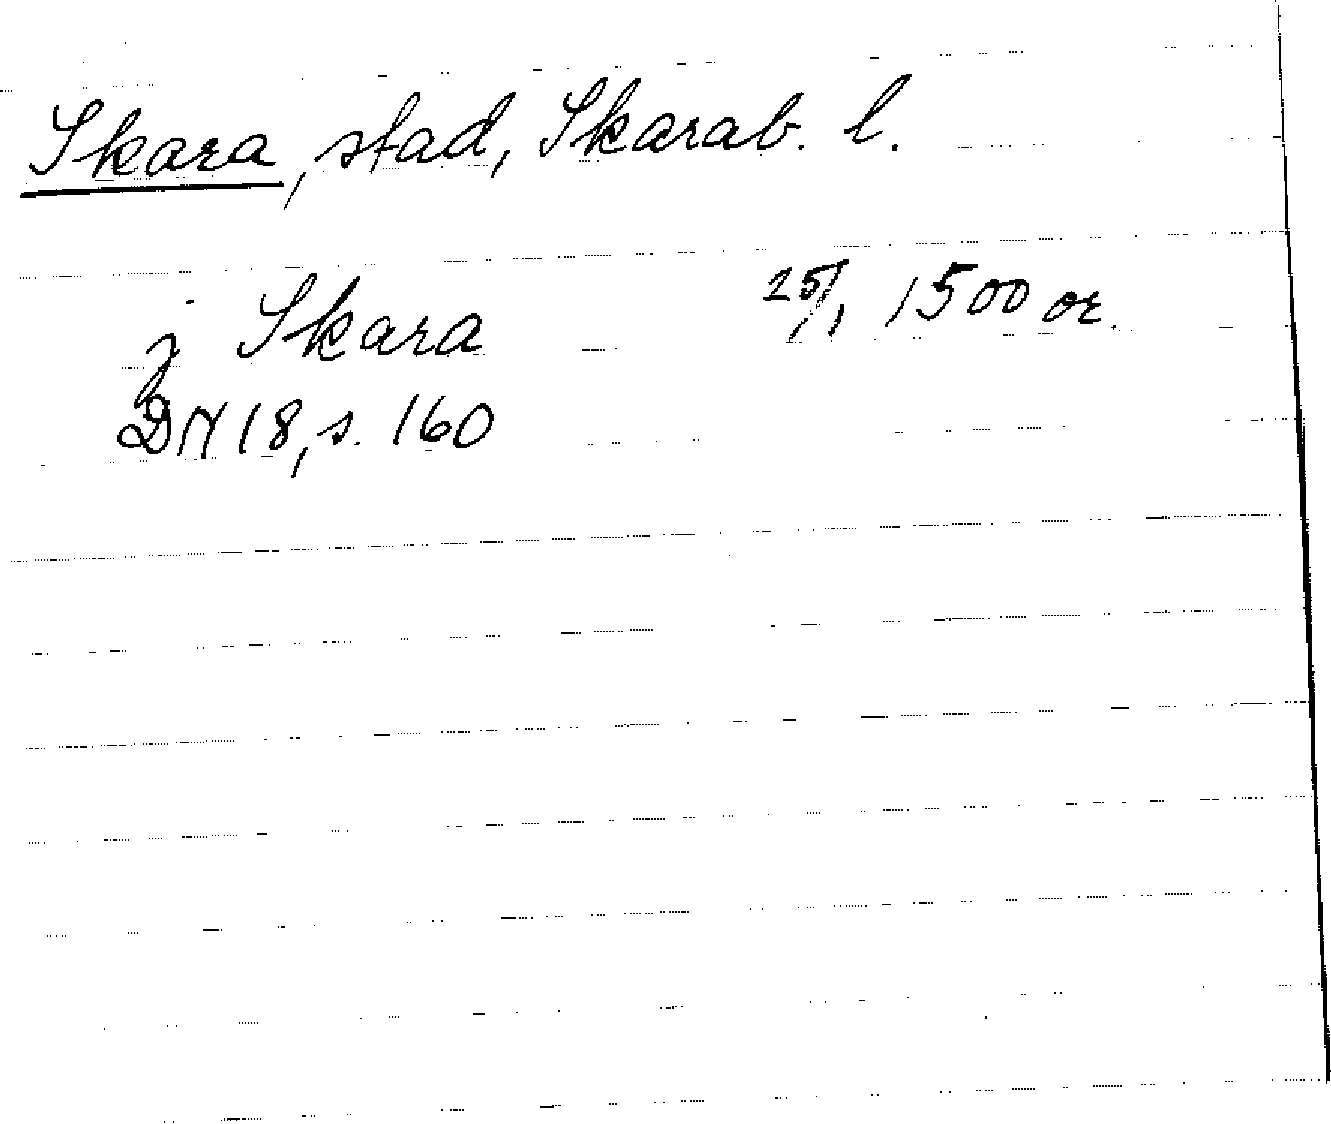 Skara, stad, Skarab. l.
j Skara 25/1 1500 or.
DN 18, s. 160